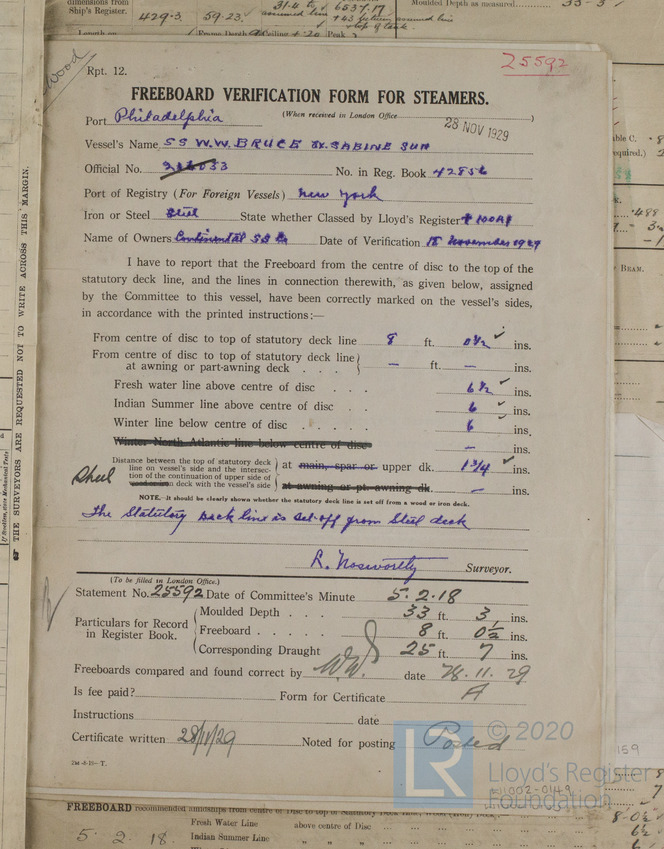 dimensions from
Ship's Register.
429.3
59.23
Moulded Depth as measured
25592
Wood
Rpt. 12.
FREEBOARD VERIFICATION FORM FOR STEAMERS.
Port Philadelphia (When received in London Office )
28 NOV 1929
Vessel's Name SS W.W. BRUCE Ex. SABINE SUN
Official No. No. in Reg. Book 42856
Port of Registry (For Foreign Vessels) New York
Iron or Steel Steel State whether Classed by Lloyd's Register + 100A1
Name of Owners Continental SS Co Date of Verification 18 November 1929
I have to report that the Freeboard from the centre of disc to the top of the
statutory deck line, and the lines in connection therewith, as given below, assigned
by the Committee to this vessel, have been correctly marked on the vessel's sides,
in accordance with the printed instructions:—
From centre of disc to top of statutory deck line 8 ft. 0½ ins.
From centre of disc to top of statutory deck line
at awning or part-awning deck . . . — ft. — ins.
Fresh water line above centre of disc . . . 6½ ins.
Indian Summer line above centre of disc . . 6 ins.
Winter line below centre of disc . . . 6 ins.
Winter North Atlantic line below centre of disc — ins.
Distance between the top of statutory deck
line on vessel's side and the intersec-
tion of the continuation of upper side of
Steel deck with the vessel's side
at main, spar or upper dk. 1¾ ins.
at awning or pt. awning dk. — ins.
NOTE.—It should be clearly shown whether the statutory deck line is set off from a wood or iron deck.
The Statutory Deck line is set off from Steel deck
R. Nosworthy Surveyor.
(To be filled in London Office.)
Statement No. 25592 Date of Committee's Minute 5.2.18
Particulars for Record
in Register Book.
Moulded Depth . . 33 ft. 3 ins.
Freeboard . . . . . 8 ft. 0½ ins.
Corresponding Draught 25 ft. 7 ins.
Freeboards compared and found correct by W.W. date 28.11.29
Is fee paid? Form for Certificate A
Instructions date
Certificate written 28/11/29 Noted for posting Posted
THE SURVEYORS ARE REQUESTED NOT TO WRITE ACROSS THIS MARGIN.
BEAM.
159
LR
© 2020
Lloyd's Register
Foundation
W1002-0149
FREEBOARD recommended
5.2.18.
Fresh Water Line above centre of Disc
Indian Summer Line